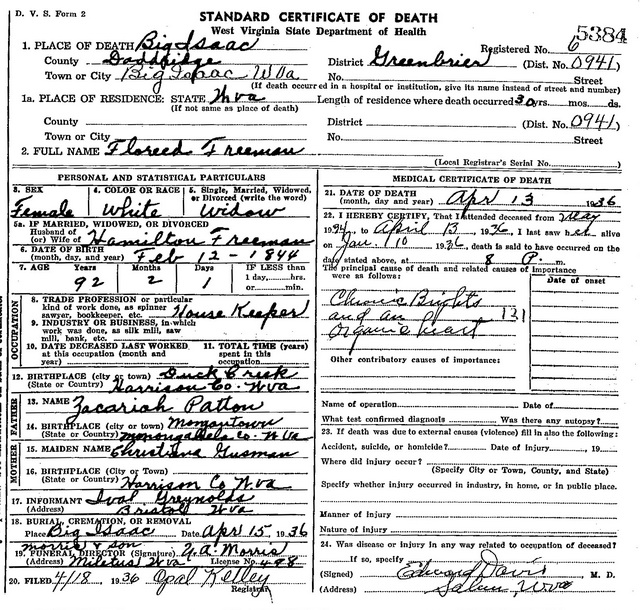 D. V. S. Form 2
STANDARD CERTIFICATE OF DEATH
West Virginia State Department of Health
5384
1. PLACE OF DEATH Big Isaac
Registered No. 6
County Doddridge
District Greenbrier (Dist. No. 0941)
Town or City Big Isaac W Va No. Street
(If death occurred in a hospital or institution, give its name instead of street and number)
1a. PLACE OF RESIDENCE: STATE W va Length of residence where death occurred 30 yrs. mos. ds.
(If not same as place of death)
County District (Dist. No. 0941)
Town or City No. Street
2. FULL NAME Floreed Freeman
(Local Registrar's Serial No.)
PERSONAL AND STATISTICAL PARTICULARS
3. SEX
Female
4. COLOR OR RACE
White
5. Single, Married, Widowed, or Divorced (write the word)
Widow
5a. IF MARRIED, WIDOWED, OR DIVORCED
Husband of
(or) Wife of Hamilton Freeman
6. DATE OF BIRTH
(month, day, and year) Feb 12 - 1844
7. AGE Years Months Days IF LESS than
1 day, hrs.
or min.
92 2 1
OCCUPATION
8. TRADE PROFESSION or particular
kind of work done, as spinner
sawyer, bookkeeper, etc. House Keeper
9. INDUSTRY OR BUSINESS, in which
work was done, as silk mill, saw
mill, bank, etc.
10. DATE DECEASED LAST WORKED
at this occupation (month and
year)
11. TOTAL TIME (years)
spent in this
occupation
12. BIRTHPLACE (city or town) Duck Creek
(State or Country) Harrison Co. W va
FATHER
13. NAME
Zacariah Patton
14. BIRTHPLACE (city or town) Morgantown
(State or Country) Monongahela Co. W Va
MOTHER
15. MAIDEN NAME
Christiana Gusman
16. BIRTHPLACE (City or Town)
(State or Country) Harrison Co W va
17. INFORMANT Ival Greynolds
(Address) Bristol W va
18. BURIAL, CREMATION, OR REMOVAL
Place Big Isaac Date Apr 15, 1936
Morris & son
19. FUNERAL DIRECTOR (Signature) G. A. Morris
(Address) Miletus W va License No. 498
20. FILED 4/18, 1936 Opal Kelley
Registrar
MEDICAL CERTIFICATE OF DEATH
21. DATE OF DEATH
(month, day and year) Apr 13 1936
22. I HEREBY CERTIFY, That I attended deceased from May
1934, to April 13, 1936, I last saw her alive
on Jan. 10 1936, death is said to have occurred on the
date stated above, at 8 P. m.
The principal cause of death and related causes of importance
were as follows:
Date of onset
Chronic Brights
and an
organic heart
131
Other contributory causes of importance:
Name of operation Date of
What test confirmed diagnosis Was there any autopsy?
23. If death was due to external causes (violence) fill in also the following:
Accident, suicide, or homicide? Date of Injury , 19
Where did injury occur?
(Specify City or Town, County, and State)
Specify whether injury occurred in industry, in home, or in public place.
Manner of Injury
Nature of Injury
24. Was disease or Injury in any way related to occupation of deceased?
If so, specify
(Signed) Edward Davis M. D.
(Address) Salem, W va